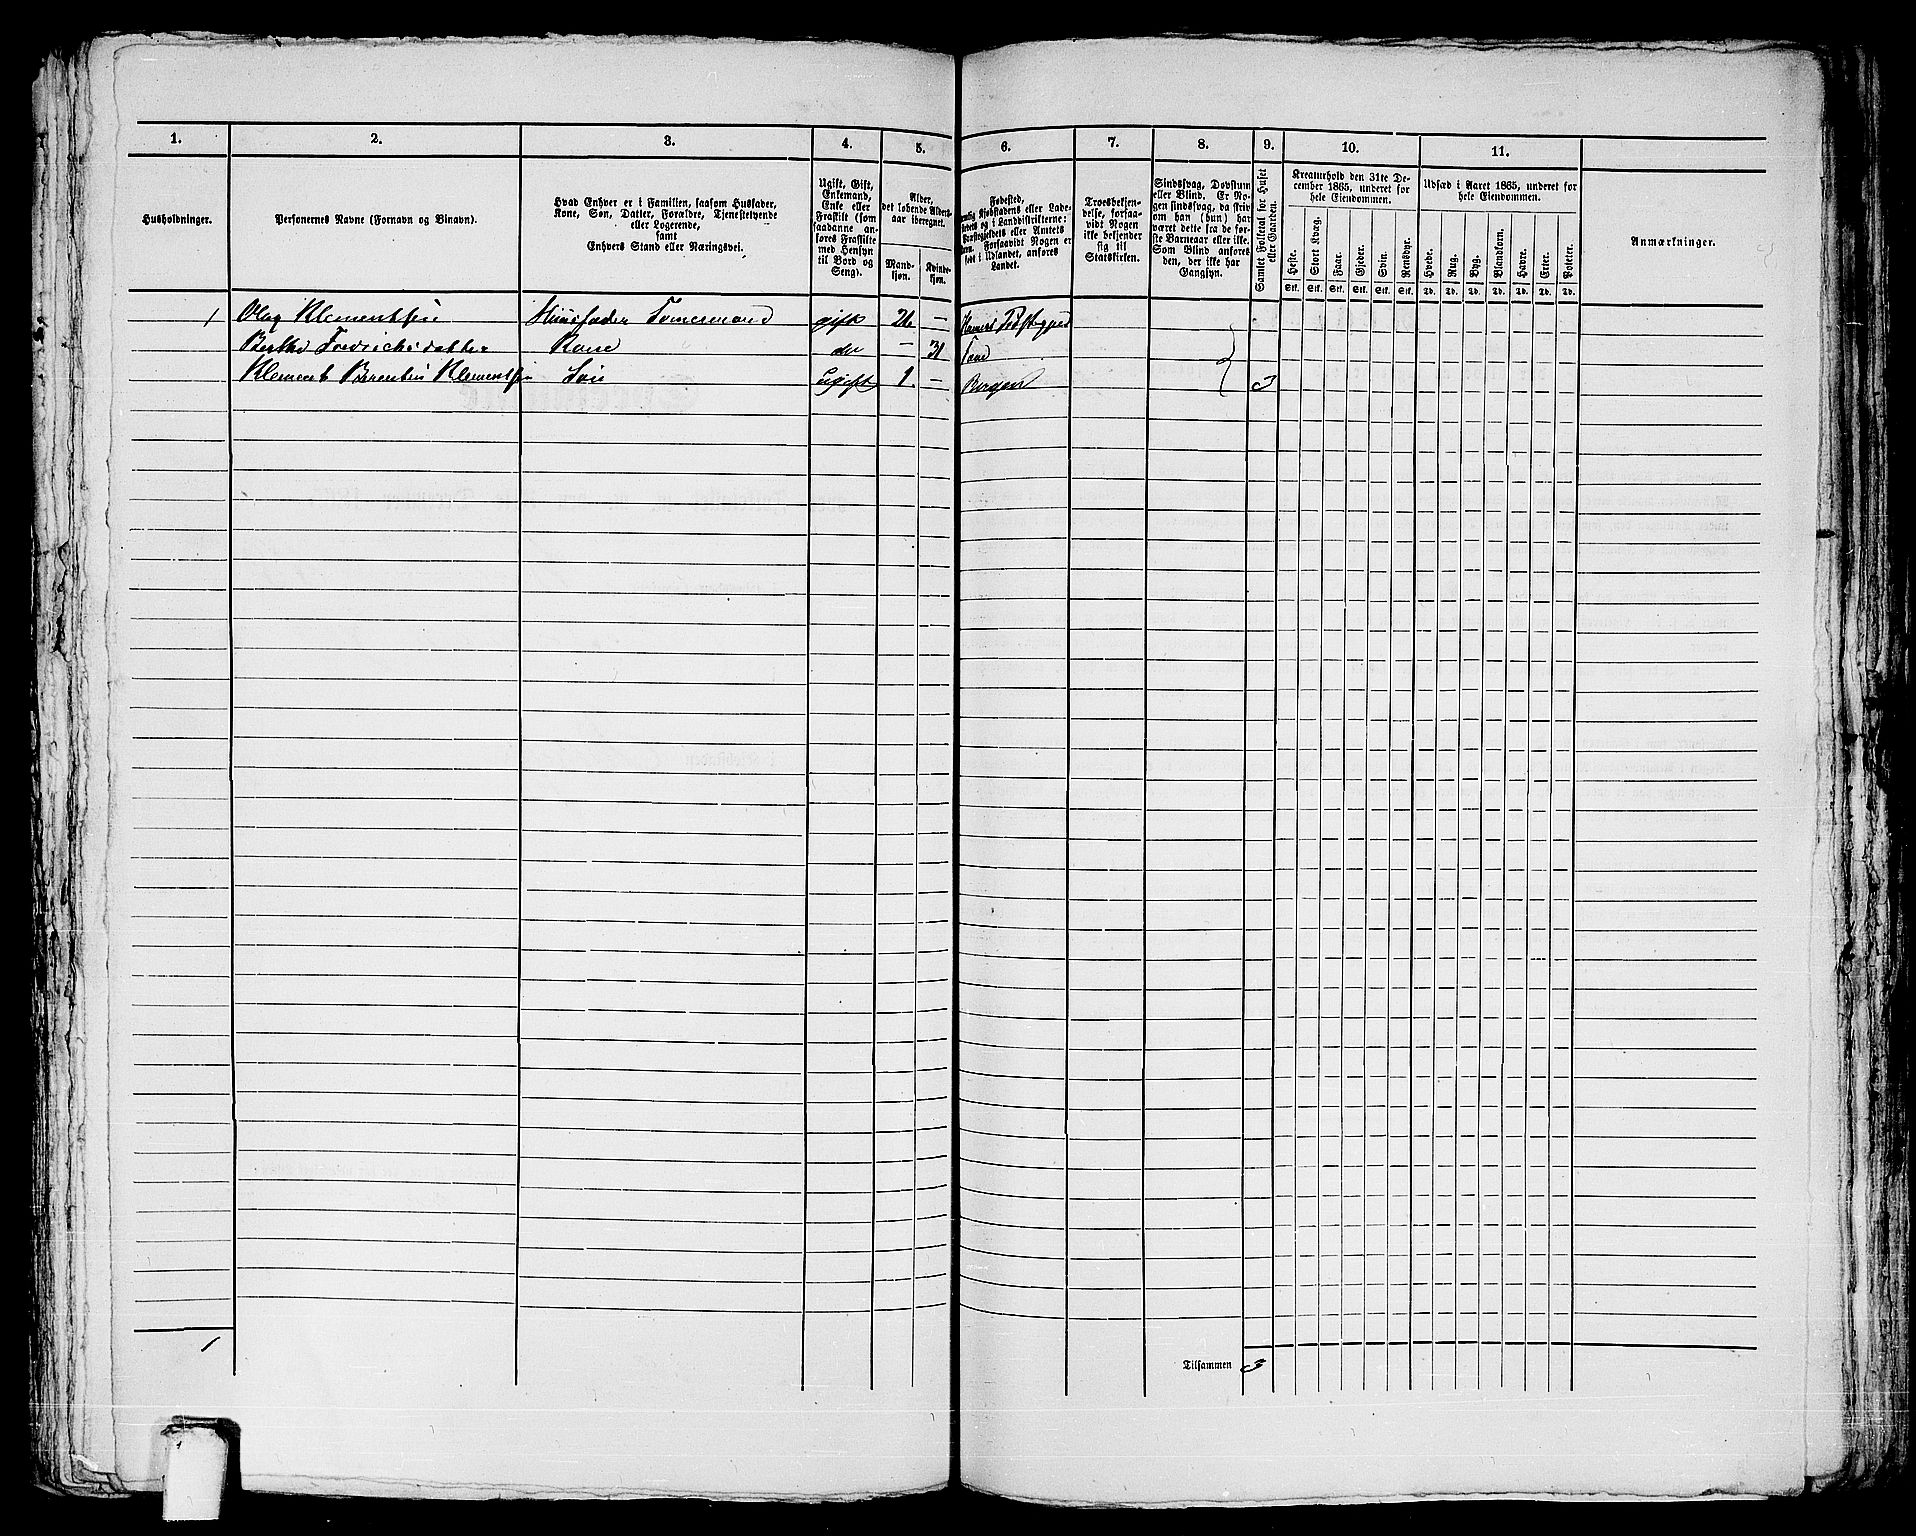 1. 2. 3. 4. 5. 6. 7. 8. 9. 10. 11.
Husholdninger.
Personernes Navne (Fornavn og Binavn).
Hvad Enhver er i Familien, saasom Husfader,
Kone, Søn, Datter, Forældre, Tjenestetyende
eller Logerende,
samt
Enhvers Stand eller Næringsvei.
Ugift, Gift,
Enkemand,
Enke eller
Fraskilt (som
saadanne an-
føres Fraskilte
med Hensyn
til Bord og
Seng).
Alder,
det løbende Alders-
aar iberegnet.
Mand-
kjøn.
Kvinde-
kjøn.
Fødested,
Kjøbstadens eller Lade-
stedets og i Landdistrikterne:
Præstegjeldets eller Amtets
Navn.
Forsaavidt Nogen er
født i Udlandet, anføres
Landet.
Troesbekjen-
delse, forsaa-
vidt Nogen
ikke bekjender
sig til
Statskirken.
Sindssvag, Døvstum
eller Blind. Er No-
gen sindssvag, da skriv
om han (hun) har
været dette fra de før-
ste Barneaar eller ikke.
Som Blind anføres
den, der ikke har
Gangsyn.
Samlet Folketal for Huset
eller Gaarden.
Kreaturhold den 31te De-
cember 1865, underet for
hele Eiendommen.
Heste. Stort Kvæg. Faar. Gjeder. Svin. Rensdyr.
Stk. Stk. Stk. Stk. Stk. Stk.
Udsæd i Aaret 1865, underet for
hele Eiendommen.
Hvede. Rug. Byg. Blandkorn. Havre. Erter. Poteter.
Td. Td. Td. Td. Td. Td. Td.
Anmærkninger.
1 Olaf Klementsen Huusfader Tømermand gift 26 —
Berthe Fredrichsdatter Kone do — 31
Klement Berentin Klementsen Søn ugift 1 — Bergen 3
1
Tilsammen 3